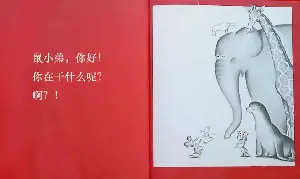 鼠小弟，你好！
你在干什么呢？
啊？！